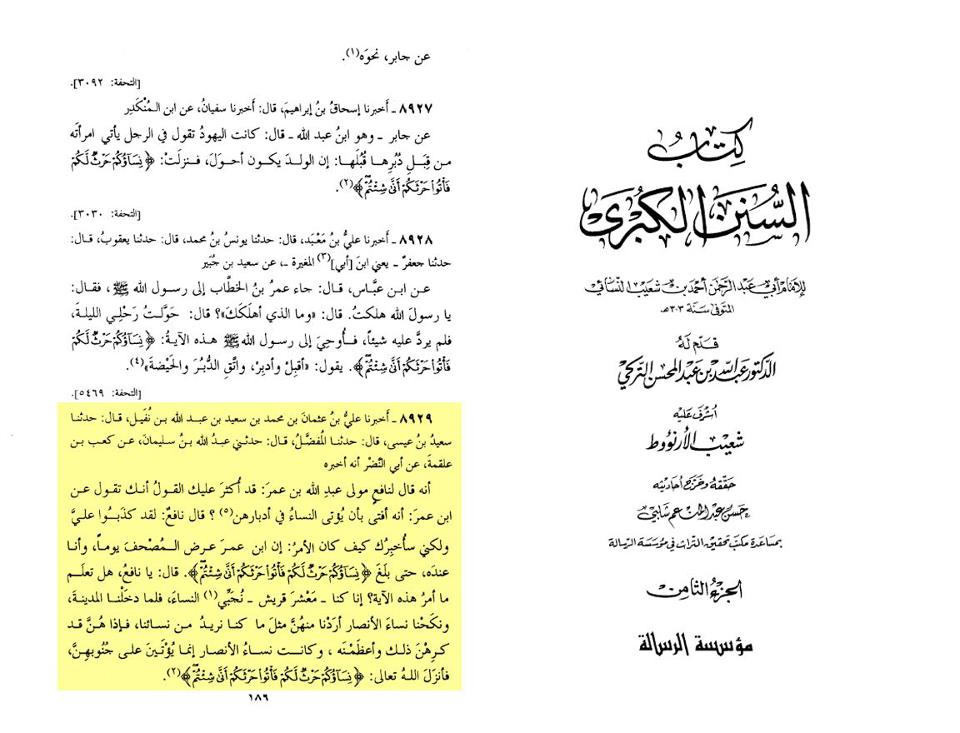 كتاب
السنن الكبرى
للإمام أبي عبد الرحمن أحمد بن شعيب النسائي
المتوفى سنة ٣٠٣هـ
قدم له
الدكتور عبد الله بن عبد المحسن التركي
أشرف عليه
شعيب الأرنؤوط
حققه وخرج أحاديثه
حسن عبد المنعم شلبي
بمساعدة مكتب تحقيق التراث في مؤسسة الرسالة
الجزء الثامن
مؤسسة الرسالة
عن جابر، نحوَه(١).
[التحفة: ٣٠٩٢].
٨٩٢٧ ـ أخبرنا إسحاقُ بنُ إبراهيمَ، قال: أخبرنا سفيانُ، عن ابن المُنْكَدِر
عن جابر ـ وهو ابنُ عبد الله ـ قال: كانت اليهودُ تقول في الرجل يأتي امرأتَه
من قِبَلِ دُبُرِها قُبُلَها: إن الولدَ يكون أحولَ، فنزلتْ: ﴿نِسَاؤُكُمْ حَرْثٌ لَكُمْ
فَأْتُوا حَرْثَكُمْ أَنَّى شِئْتُمْ﴾(٢).
[التحفة: ٣٠٣٠].
٨٩٢٨ ـ أخبرنا عليُّ بنُ مَعْبَد، قال: حدثنا يونسُ بنُ محمد، قال: حدثنا يعقوبُ، قال:
حدثنا جعفرٌ ـ يعني ابنَ [أبي](٣) المغيرة ـ، عن سعيد بن جُبَير
عن ابن عبَّاس، قال: جاء عمرُ بنُ الخطَّاب إلى رسول الله ﷺ، فقال:
يا رسولَ الله هلكتُ. قال: «وما الذي أهلَكَكَ»؟ قال: حَوَّلتُ رَحْلِي الليلةَ،
فلم يردَّ عليه شيئاً، فأُوحيَ إلى رسول الله ﷺ هذه الآيةُ: ﴿نِسَاؤُكُمْ حَرْثٌ لَكُمْ
فَأْتُوا حَرْثَكُمْ أَنَّى شِئْتُمْ﴾. يقول: «أقبِلْ وأدبِرْ، واتَّقِ الدُّبُرَ والحَيْضةَ»(٤).
[التحفة: ٥٤٦٩].
٨٩٢٩ ـ أخبرنا عليُّ بنُ عثمانَ بن محمد بن سعيد بن عبد الله بن نُفَيل، قال: حدثنا
سعيدُ بنُ عيسى، قال: حدثنا المُفضَّلُ، قال: حدثني عبدُ الله بنُ سليمانَ، عن كعب بن
علقمةَ، عن أبي النَّضْر أنه أخبره
أنه قال لنافعٍ مولى عبدِ الله بن عمرَ: قد أُكثرَ عليك القولُ أنك تقول عن
ابن عمرَ: أنه أفتى بأن يُؤتى النساءُ في أدبارهن(٥)؟ قال نافعٌ: لقد كذَبُوا عليَّ
ولكني سأخبِرُك كيف كان الأمرُ: إن ابن عمرَ عرض المُصْحفَ يوماً، وأنا
عندَه، حتى بلَغَ ﴿نِسَاؤُكُمْ حَرْثٌ لَكُمْ فَأْتُوا حَرْثَكُمْ أَنَّى شِئْتُمْ﴾. قال: يا نافعُ، هل تعلَم
ما أمرُ هذه الآية؟ إنا كنا ـ مَعْشرَ قريش ـ نُجَبِّي(١) النساءَ، فلما دخَلْنا المدينةَ،
ونكَحْنا نساءَ الأنصار أردْنا منهنَّ مثلَ ما كنا نريدُ من نسائنا، فإذا هُنَّ قد
كرِهْنَ ذلك وأعظَمْنَه، وكانت نساءُ الأنصار إنما يُؤْتَينَ على جُنُوبهِنَّ،
فأنزَلَ اللهُ تعالى: ﴿نِسَاؤُكُمْ حَرْثٌ لَكُمْ فَأْتُوا حَرْثَكُمْ أَنَّى شِئْتُمْ﴾(٢).
١٨٩